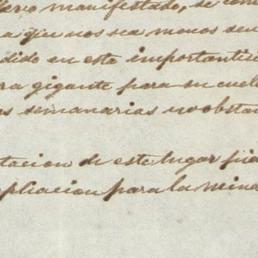 manifestado, se com
a que nos sea menos sen
dido en este importantici
ra gigante para su cuelo
as semanarias no obstan
tacion de este lugar fue
pliacion para la mina